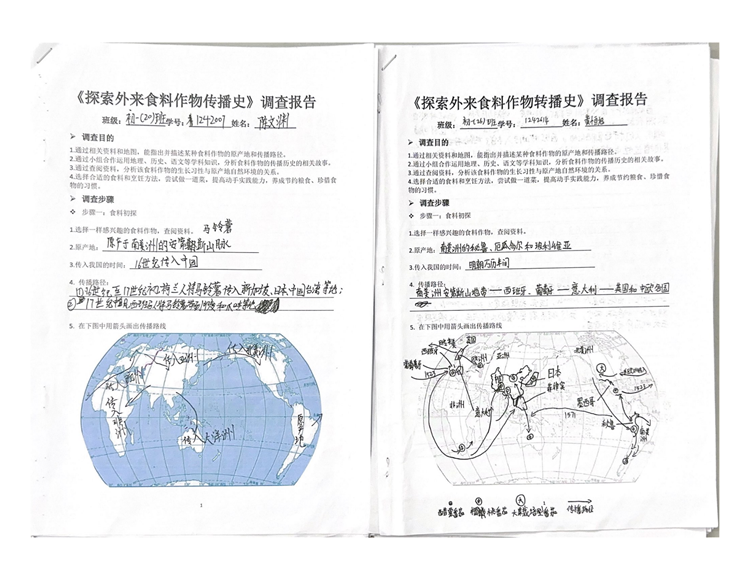 《探索外来食料作物传播史》调查报告
班级：初一(20)班 学号：1242007 姓名：陈文渊
➢ 调查目的
1.通过相关资料和地图，能指出并描述某种食料作物的原产地和传播路径。
2.通过小组合作运用地理、历史、语文等学科知识，分析食料作物的传播历史的相关故事。
3.通过查阅资料，分析该食料作物的生长习性与原产地自然环境的关系。
4.选择合适的食料和烹饪方法，尝试做一道菜，提高动手实践能力，养成节约粮食、珍惜食物的习惯。
➢ 调查步骤
❖ 步骤一：食料初探
1.选择一样感兴趣的食料作物，查阅资料。 马铃薯
2.原产地：原产于南美洲的安第斯山脉
3.传入我国的时间：16世纪传入中国
4. 传播路径：
5. 在下图中用箭头画出传播路线
传入亚洲
传入北美洲
传入欧洲
传入非洲
传入大洋洲
原产地
1
《探索外来食料作物转播史》调查报告
班级：初一(26)班 学号：1242614 姓名：
➢ 调查目的
1.通过相关资料和地图，能指出并描述某种食料作物的原产地和传播路径。
2.通过小组合作运用地理、历史、语文等学科知识，分析食料作物的传播历史的相关故事。
3.通过查阅资料，分析该食料作物的生长习性与原产地自然环境的关系。
4.选择合适的食料和烹饪方法，尝试做一道菜，提高动手实践能力，养成节约粮食、珍惜食物的习惯。
➢ 调查步骤
❖ 步骤一：食料初探
1.选择一样感兴趣的食料作物，查阅资料。
2.原产地：南美洲的秘鲁、厄瓜多尔和玻利维亚
3.传入我国的时间：明朝万历年间
4. 传播路径：
南美洲安第斯山地带——西班牙、葡萄牙——意大利——英国和中欧各国
5. 在下图中用箭头画出传播路线
英国
西班牙
葡萄牙
欧洲
亚洲
北美洲
日本
菲律宾
非洲
意大利
墨西哥
秘鲁
南美洲
传播路径